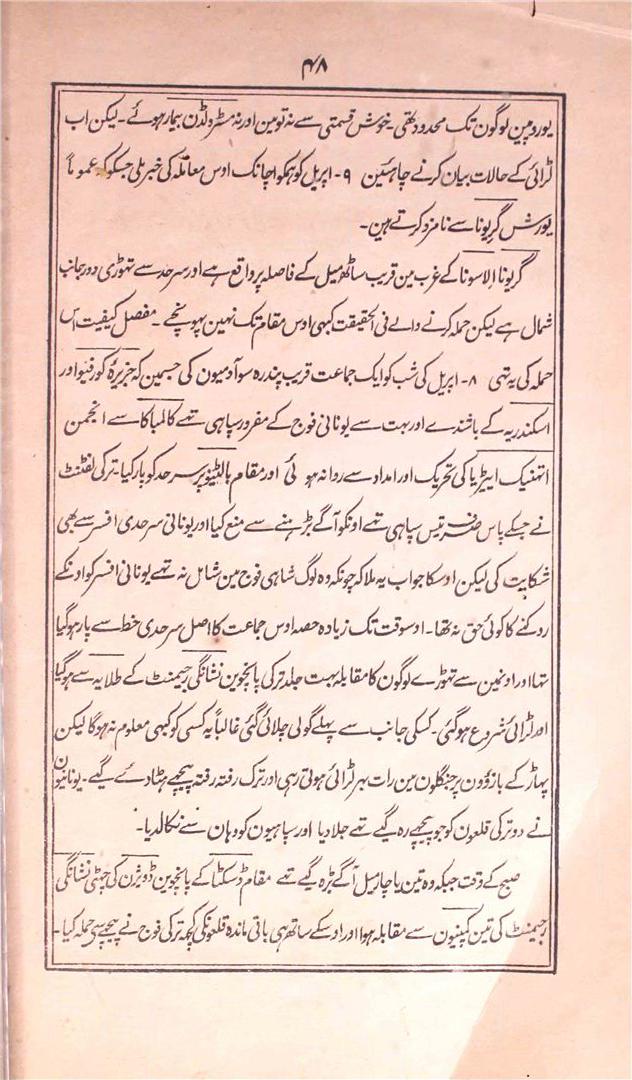 ۴۸
یوروپین لوگون تک محدود تھی۔ خوش قسمتی سے نہ تو مین اور نہ مسٹر ولڈن بیمار ہوئے۔ لیکن اب
لڑائی کے حالات بیان کرنے چاہئین ۹۔ اپریل کو ہمکو اچانک اوس معاملہ کی خبر ملی جسکو کہ عموماً
یورش گریونا سے نامزد کرتے ہین۔
گریونا الاسونا کے غرب مین قریب ساٹھ میل کے فاصلہ پر واقع ہے اور سرحد سے تہوڑی دور بجانب
شمال ہے لیکن حملہ کرنے والے فی الحقیقت کبھی اوس مقام تک نہین پہونچے۔ مفصل کیفیت اس
حملہ کی یہ تہی ۸۔ اپریل کی شب کو ایک جماعت قریب پندرہ سو آدمیون کی جسمین کہ جزیرۂ کورفیو اور
اسکندریہ کے باشندے اور بہت سے یونانی فوج کے مفرور سپاہی تہے کالمباکا سے انجمن
اتھنیک ایٹریا کی تحریک اور امداد سے روانہ ہوئی اور مقام بالٹینو پر سرحد کو پار کیا۔ ترکی لفٹنٹ
نے جسکے پاس صرف تیس سپاہی تہے اونکو آگے بڑہنے سے منع کیا اور یونانی سرحدی افسر سے بھی
شکایت کی لیکن اوسکا جواب یہ ملا کہ چونکہ وہ لوگ شاہی فوج مین شامل نہ تہے یونانی افسر کو اونکے
روکنے کا کوئی حق نہ تھا۔ اوسوقت تک زیادہ حصہ اوس جماعت کا اصل سرحدی خط سے پار ہوگیا
تہا اور اونمین سے تہوڑے لوگون کا مقابلہ بہت جلد ترکی پانچوین نشانگی رجیمنٹ کے طلایہ سے ہوگیا
اور لڑائی شروع ہوگئی۔ کسکی جانب سے پہلے گولی چلائی گئی غالباً یہ کسی کو کبھی معلوم نہ ہوگا لیکن
پہاڑ کے بازؤون پر جنگلون مین رات بہر لڑائی ہوتی رہی اور ترک رفتہ رفتہ پیچہے ہٹا دئے گیے۔ یونانیون
نے دو ترکی قلعون کو جو پیچہے رہ گیے تہے جلا دیا اور سپاہیون کو وہان سے نکالدیا۔
صبح کے وقت جبکہ وہ تین یا چار میل آگے بڑہ گیے تہے مقام ڈسکٹا کے پانچوین ڈویژن کی چہٹی نشانگی
رجیمنٹ کی تین کمپنیون سے مقابلہ ہوا اور اوسکے ساتھ ہی باقی ماندہ قلعونکی کچہ ترکی فوج نے پیچہے سے حملہ کیا۔